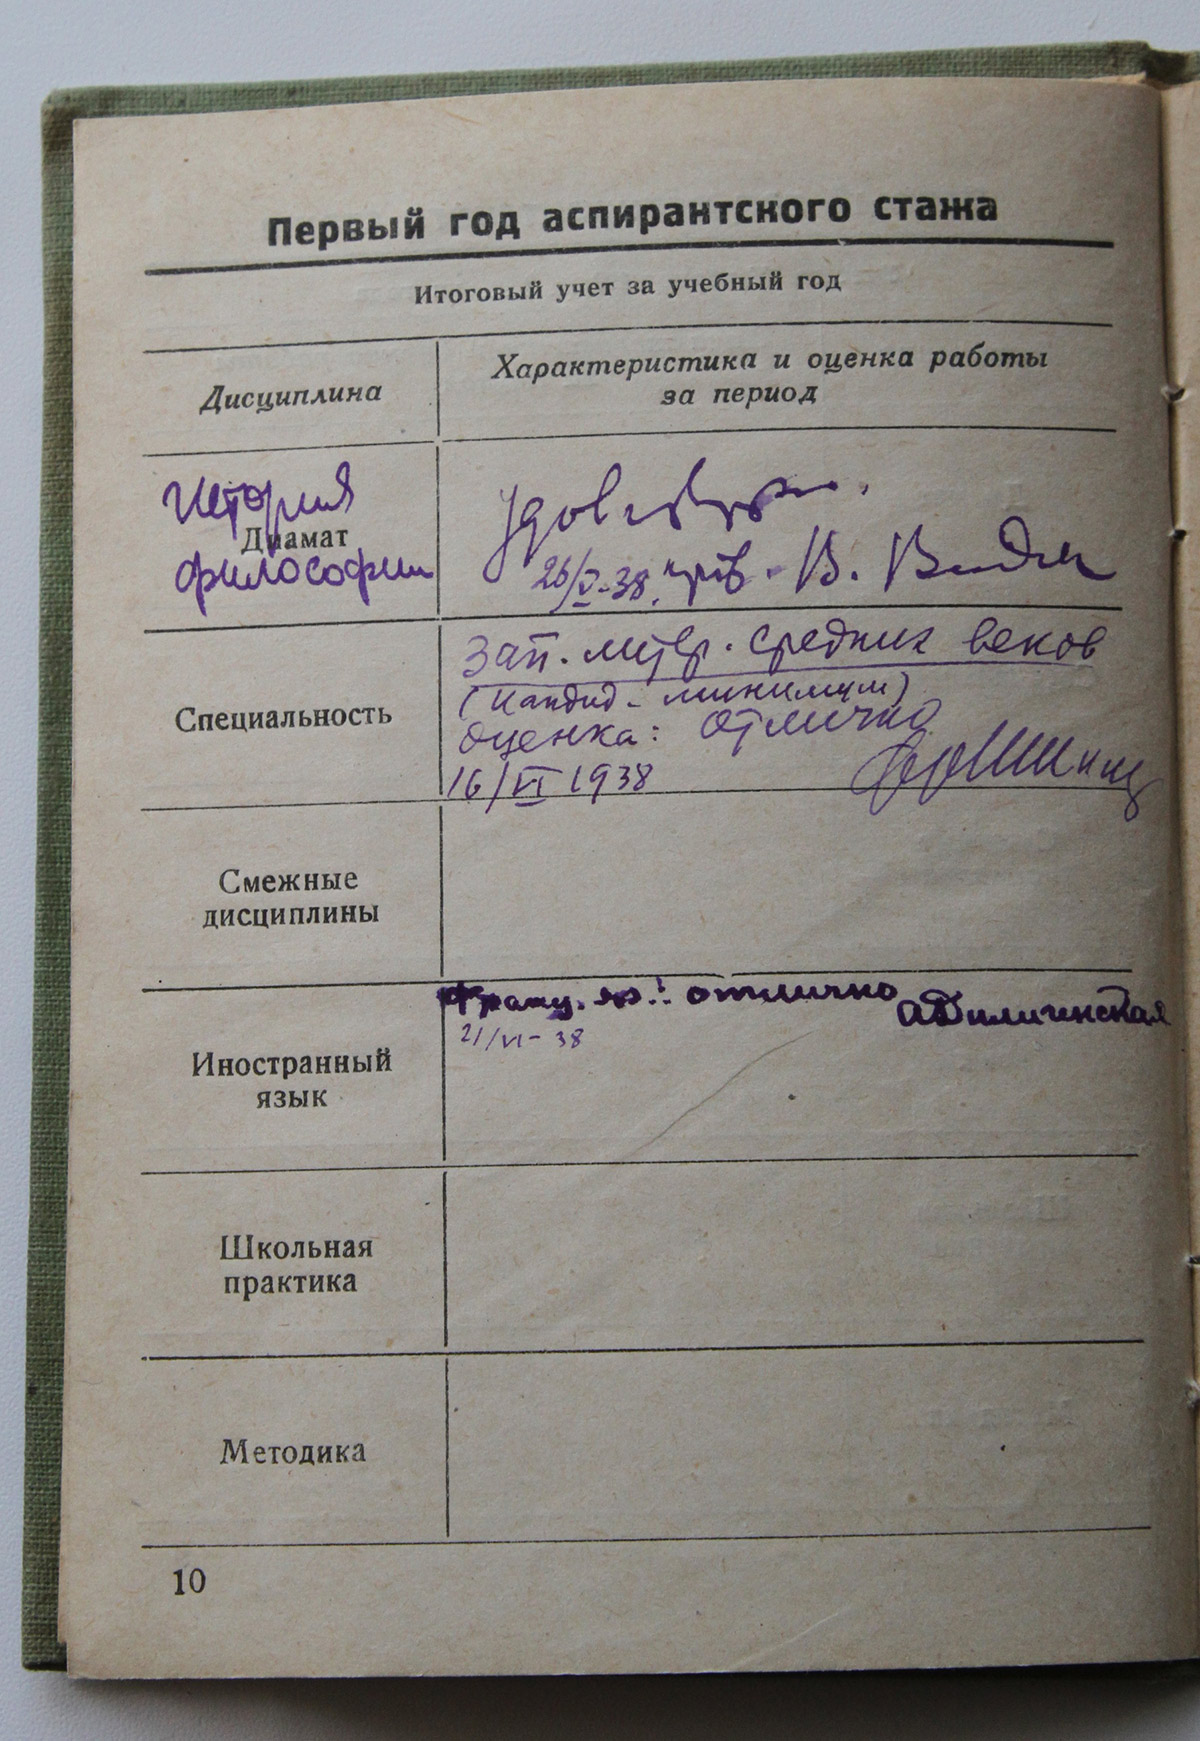 Первый год аспирантского стажа
Итоговый учет за учебный год
Дисциплина
Характеристика и оценка работы
за период
История
Диамат
философии
26/V-38. В.
Специальность
Зап. литер. средних веков
(Кандид. минимум)
Оценка: отлично
16/VI 1938
Смежные
дисциплины
Иностранный
язык
Франц. яз.: отлично
21/VI-38
Школьная
практика
Методика
10